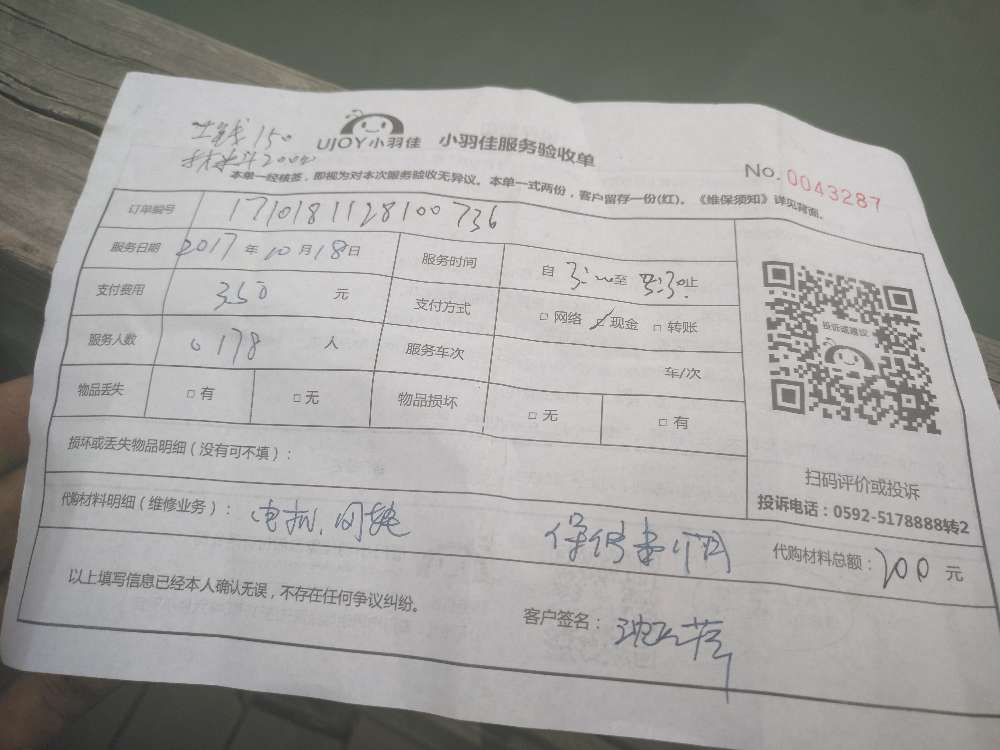 工钱150
材料200
UJOY小羽佳 小羽佳服务验收单
No. 0043287
本单一经核签，即视为对本次服务验收无异议。本单一式两份，客户留存一份(红)。《维保须知》详见背面。
订单编号 1710181128100736
服务日期 2017年10月18日 服务时间 自 至 止
支付费用 350 元 支付方式 □网络 ☑现金 □转账
服务人数 0178 人 服务车次 车/次
物品丢失 □有 □无 物品损坏 □无 □有
投诉或建议
损坏或丢失物品明细（没有可不填）：
扫码评价或投诉
投诉电话：0592-5178888转2
代购材料明细（维修业务）： 电机、 保修 个月 代购材料总额：200元
以上填写信息已经本人确认无误，不存在任何争议纠纷。
客户签名：